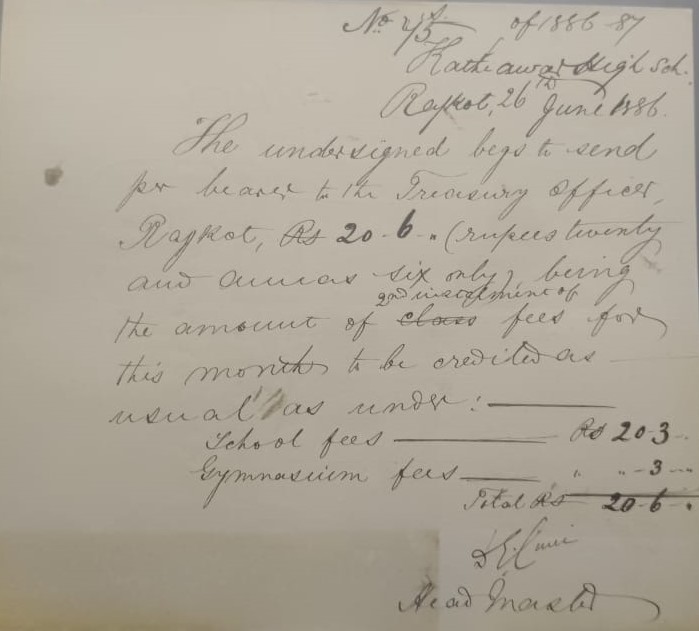 No of 1886-87
Kathiawar High Sch.
Rajkot, 26th June 1886.
The undersigned begs to send
per bearer to the Treasury Officer,
Rajkot, Rs 20-6-" (rupees twenty
and annas six only) being
2nd instalment of
the amount of class fees for
this month to be credited as
usual as under:—
School fees — Rs 20-3-"
Gymnasium fees — " "-3-"
Total Rs 20-6-"
Head Master